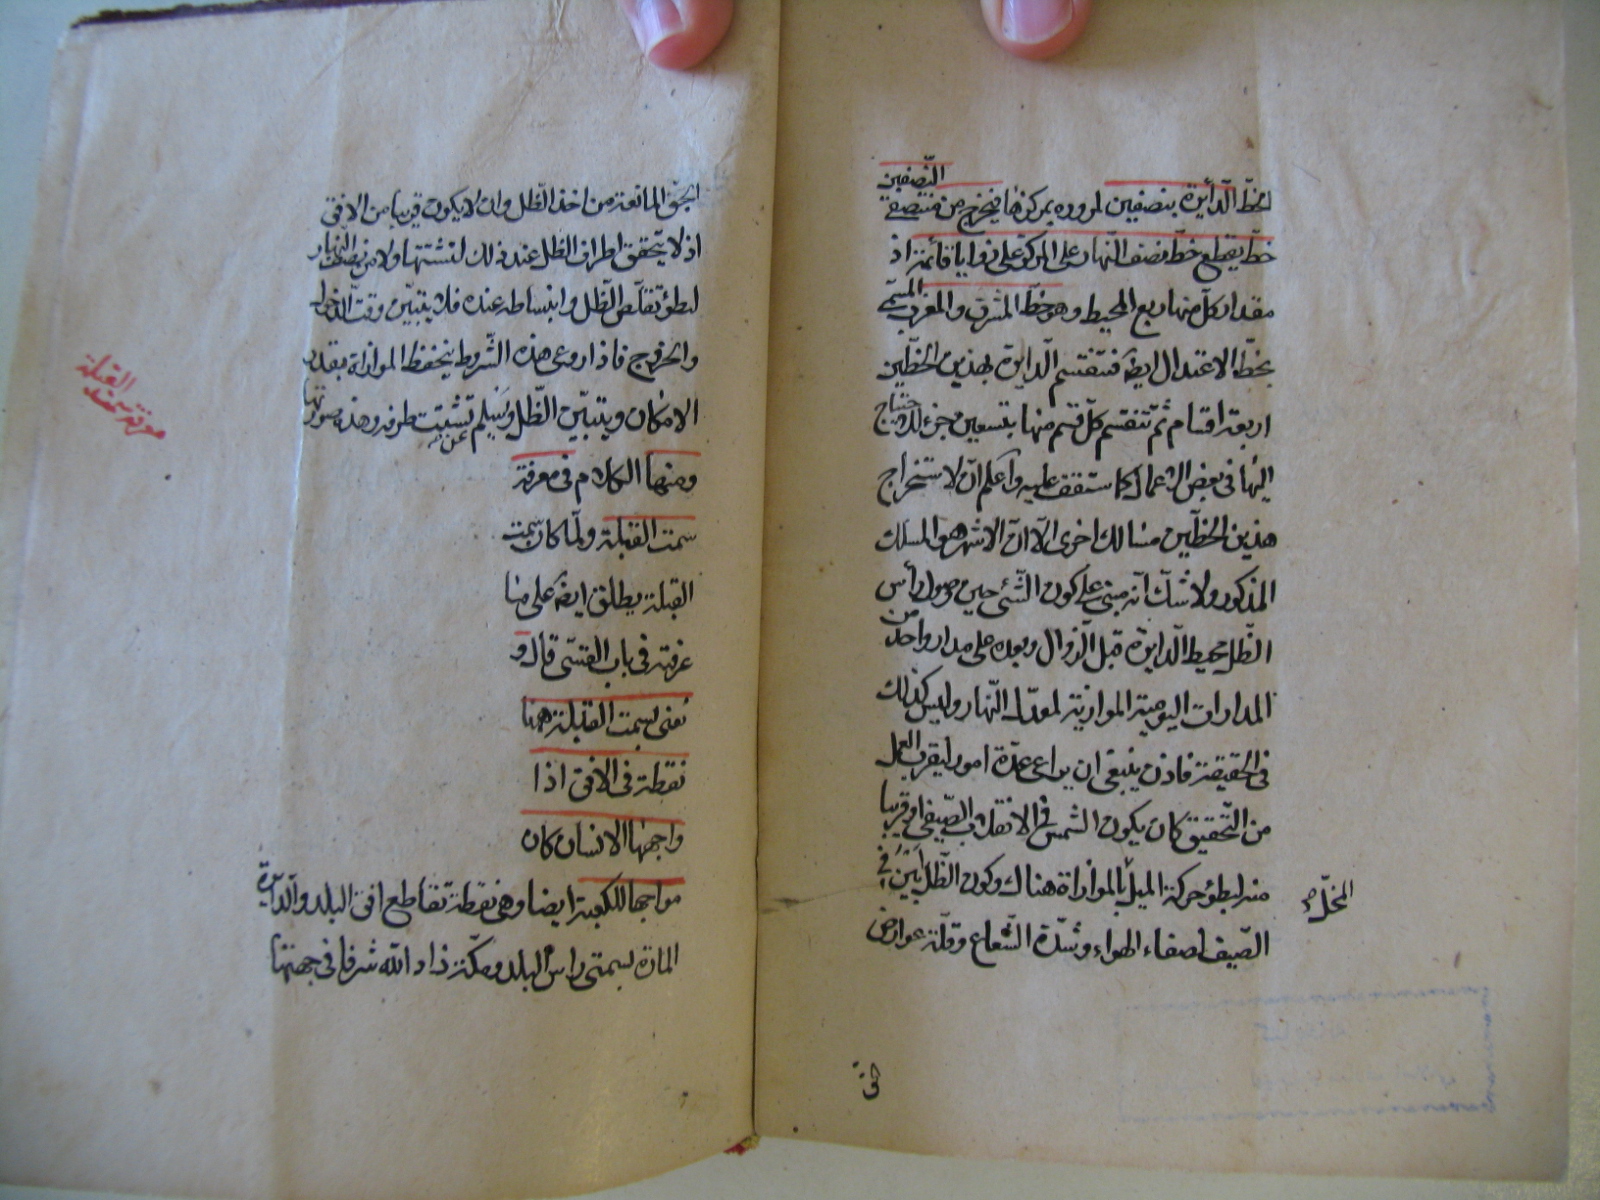 النصفين
الخطّ الدّايرة بنصفين لمروره بمركزها فيخرج من منتصفى
خطّ يقطع خطّ نصف النّهار على المركز على زوايا قائمة اذ
مقدار كلّ منها ربع المحيط وهو خطّ المشرق والمغرب المسمّى
بخطّ الاعتدال ايضا فتنقسم الدّايرة بهذين الخطّين
اربعة اقسام ثمّ تنقسم كلّ قسم منها بتسعين جزء للاحتياج
اليها فى بعض الاعمال كما ستقف عليه واعلم انّ لاستخراج
هذين الخطّين مسالك اخرى الّا انّ الاشهر هو المسلك
المذكور ولا شكّ انّه مبنى على كون الشّمس حين وصول رأس
الظّل محيط الدّايرة قبل الزّوال وبعده على مدار واحد من
المدارات اليومية الموازية لمعدّل النّهار وليس كذلك
فى الحقيقة فاذن ينبغى ان يراعى عدّة امور ليقرب العمل
من التّحقيق كان يكون الشمس فى الانقلاب الصّيفى او قريبا
منه لبطؤ حركة الميل بالموازاة هناك وكون الظّل ابين فى
الصّيف لصفاء الهواء وشدّة الشّعاع وقلّة عوارض
الجوّ المانعة من اخذ الظّل وان لا يكون قريبا من الافق
اذ لا يتحقق اطراف الظل عند ذلك لتشتتها ولا من نصف النهار
لبطؤ تقلّص الظّل وانبساطه عنده فلا يتبيّن وقت الدّخول
والخروج فاذا روعى هذه الشّروط ينحفظ الموازاة بقدر
الامكان ويتبيّن الظّل ويسلم عن تشتت طرفه وهذه صورتها
ومنها الكلام فى معرفة
سمت القبلة ولمّا كان سمت
القبلة يطلق ايضا على ما
عرفته فى باب القسىّ قال و
نعنى بسمت القبلة ههنا
نقطة فى الافق اذا
واجهها الانسان كان
مواجها للكعبة ايضا وهى نقطة تقاطع افق البلد والدّايرة
المارّة بسمتى رأس البلد ومكّة زاد الله شرفا فى جهتها
معرفة سمت القبلة